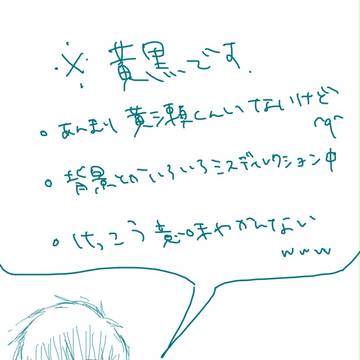 ※ 黄黒です.
。あんまり黄瀬くんいないけど
^q^
。背景とかいろいろミスディレクション中
。けっこう意味わかんない
www